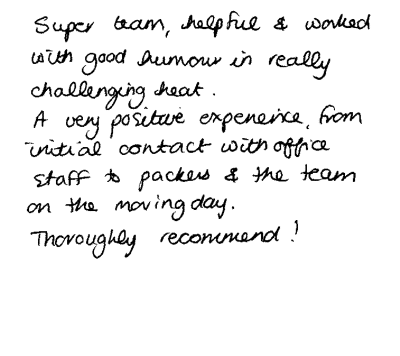 Super team, helpful & worked
with good humour in really
challenging heat.
A very positive experience, from
initial contact with office
staff to packers & the team
on the moving day.
Thoroughly recommend!